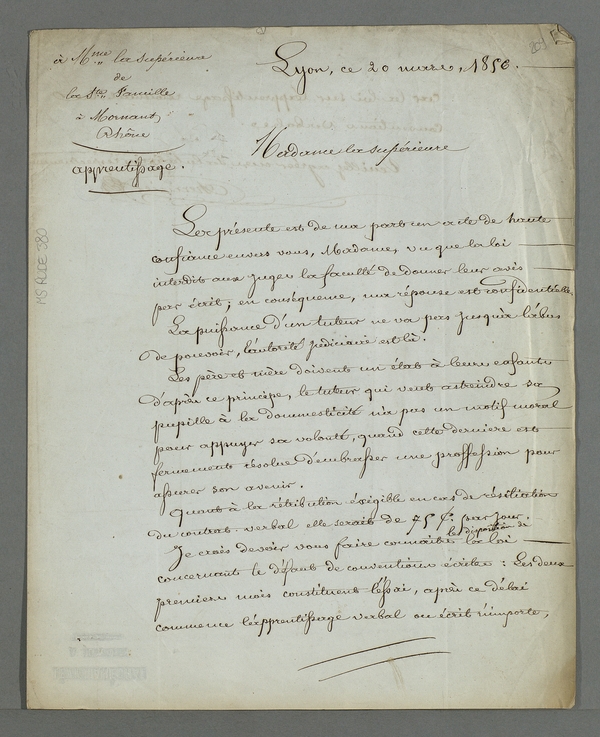 à Mme la supérieure
de
la Ste Famille
à Mornant
Rhône
apprentissage.
Lyon, ce 20 mars, 1850.
Madame la supérieure
La présente est de ma part un acte de haute
confiance envers vous, Madame, vu que la loi
interdit aux juges la faculté de donner leur avis
par écrit; en conséquence, ma réponse est confidentielle.
La puissance d'un tuteur ne va pas jusqu'à l'abus
de pouvoir, l'autorité judiciaire est là.
Les père et mère doivent un état à leurs enfants
d'après ce principe, le tuteur qui veut astreindre sa
pupille à la dommesticité n'a pas un motif moral
pour appuyer sa volonté, quand cette dernière est
fermement résolue d'embrasser une proffession pour
assurer son avenir.
Quant à la rétribution éxigible en cas de résiliation
du contrat verbal elle serait de 75 c. par jour.
Je crois devoir vous faire connaître les disposition de la loi
concernant le défaut de conventions écrites : Les deux
premiers mois constituent l'essai, après ce délai
commence l'apprentissage verbal ou écrit n'importe,
MS RUDE 380